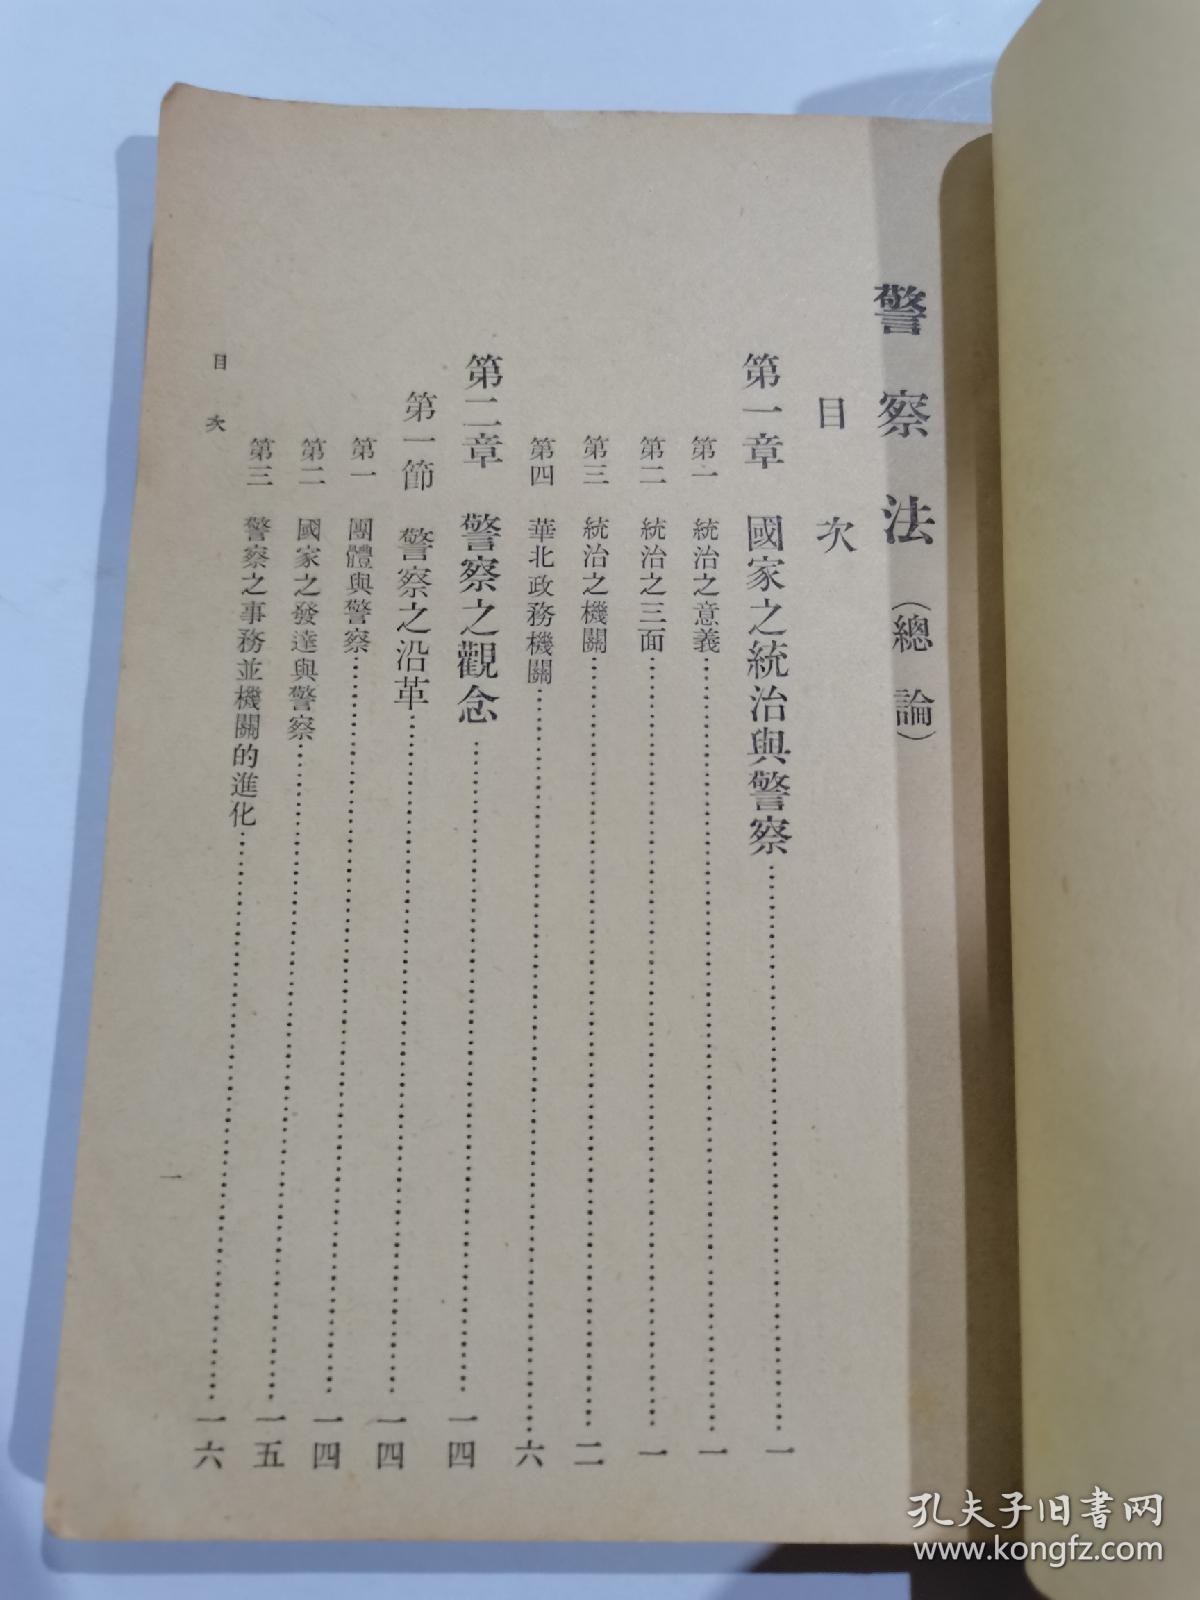 警察法（總論）
目次
第一章 國家之統治與警察……一
第一 統治之意義……一
第二 統治之三面……一
第三 統治之機關……二
第四 華北政務機關……六
第二章 警察之觀念……一四
第一節 警察之沿革……一四
第一 團體與警察……一四
第二 國家之發達與警察……一五
第三 警察之事務並機關的進化……一六
目次
一
孔夫子旧书网
www.kongfz.com